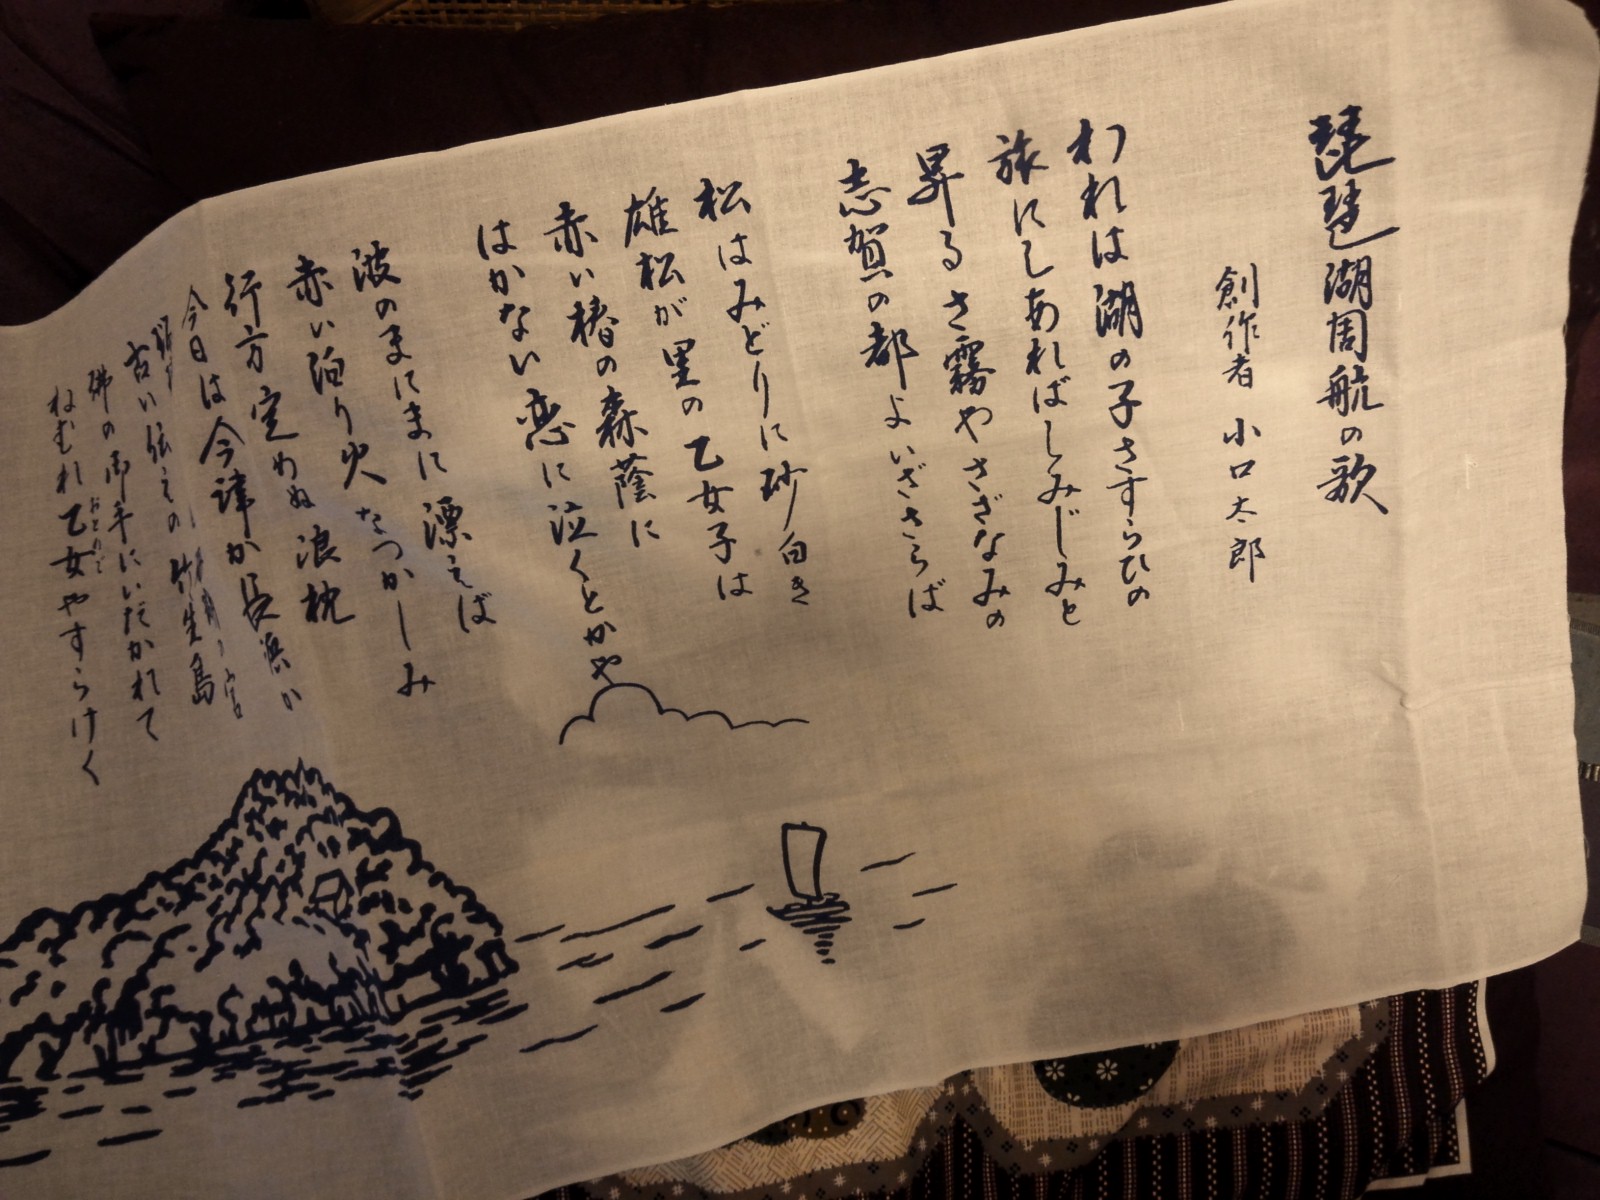 琵琶湖周航の歌
創作者 小口太郎
われは湖の子さすらひの
旅にしあればしみじみと
昇るさ霧やさざなみの
志賀の都よいざさらば
松はみどりに砂白き
雄松が里の乙女子は
赤い椿の森蔭に
はかない恋に泣くとかや
波のまにまに漂えば
赤い泊り火なつかしみ
行方定めぬ浪枕
今日は今津か長浜か
古い伝えの竹生島
佛の御手にいだかれて
ねむれ乙女やすらけく
おとめご